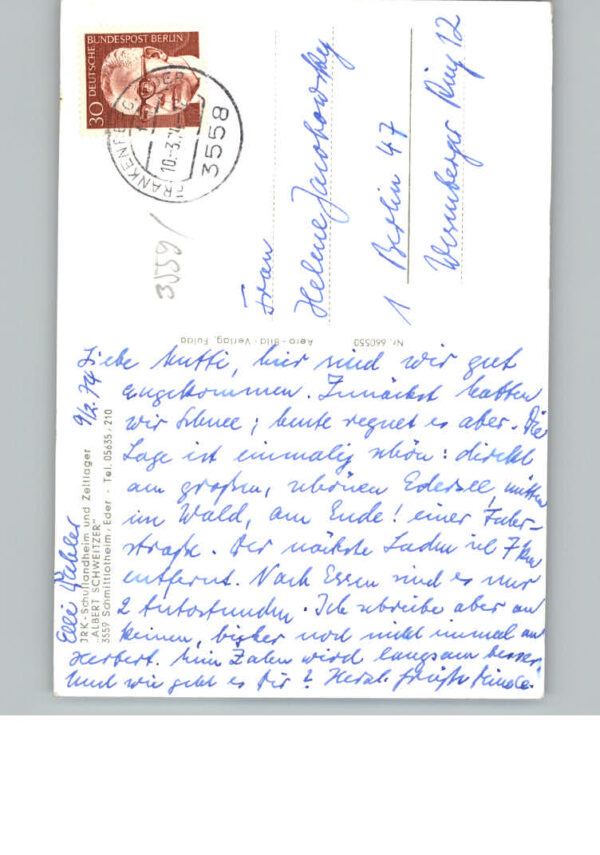 30 DEUTSCHE BUNDESPOST BERLIN
10.-3.74
3558
3559
Frau
Helene Jacobowsky
1 Berlin 47
Ring 12
Nr. 660550 Aero-Bild-Verlag, Fulda
JRK-Schullandheim und Zeltlager
„ALBERT SCHWEITZER"
3559 Schmittlotheim/Eder - Tel. 05635/210
Elli
Liebe Mutti, hier sind wir gut
angekommen. Zunächst hatten
wir Schnee; heute regnet es aber. Die
Lage ist einmalig schön: direkt
am großen, schönen Edersee, mitten
im Wald, am Ende! einer Fahr-
straße. Der nächste Laden ist 7 km
entfernt. Nach Essen sind es nur
2 Autostunden. Ich schreibe aber an
keinen, bisher noch nicht einmal an
Herbert. Mein wird langsam besser.
Und wie geht es Dir? Herzl. Grüße